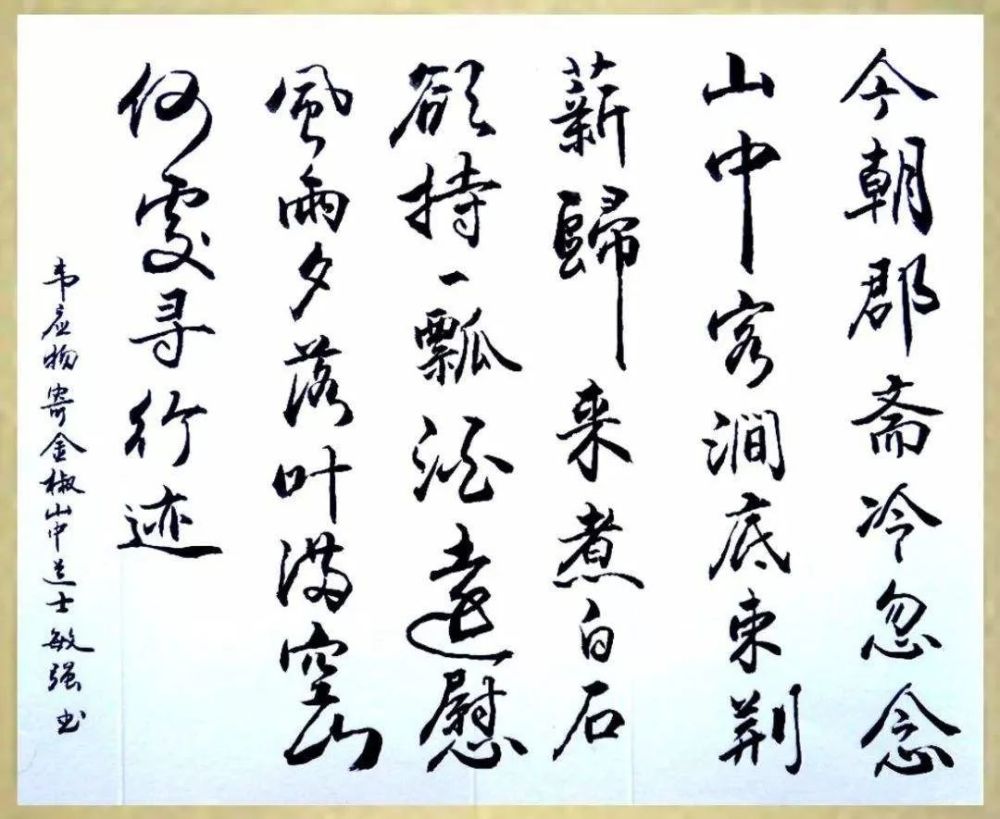 今朝郡斋冷忽念
山中客澗底束荆
薪歸来煮白石
欲持一瓢酒遠慰
風雨夕落叶满空山
何處寻行迹
韦应物寄全椒山中道士敏强书